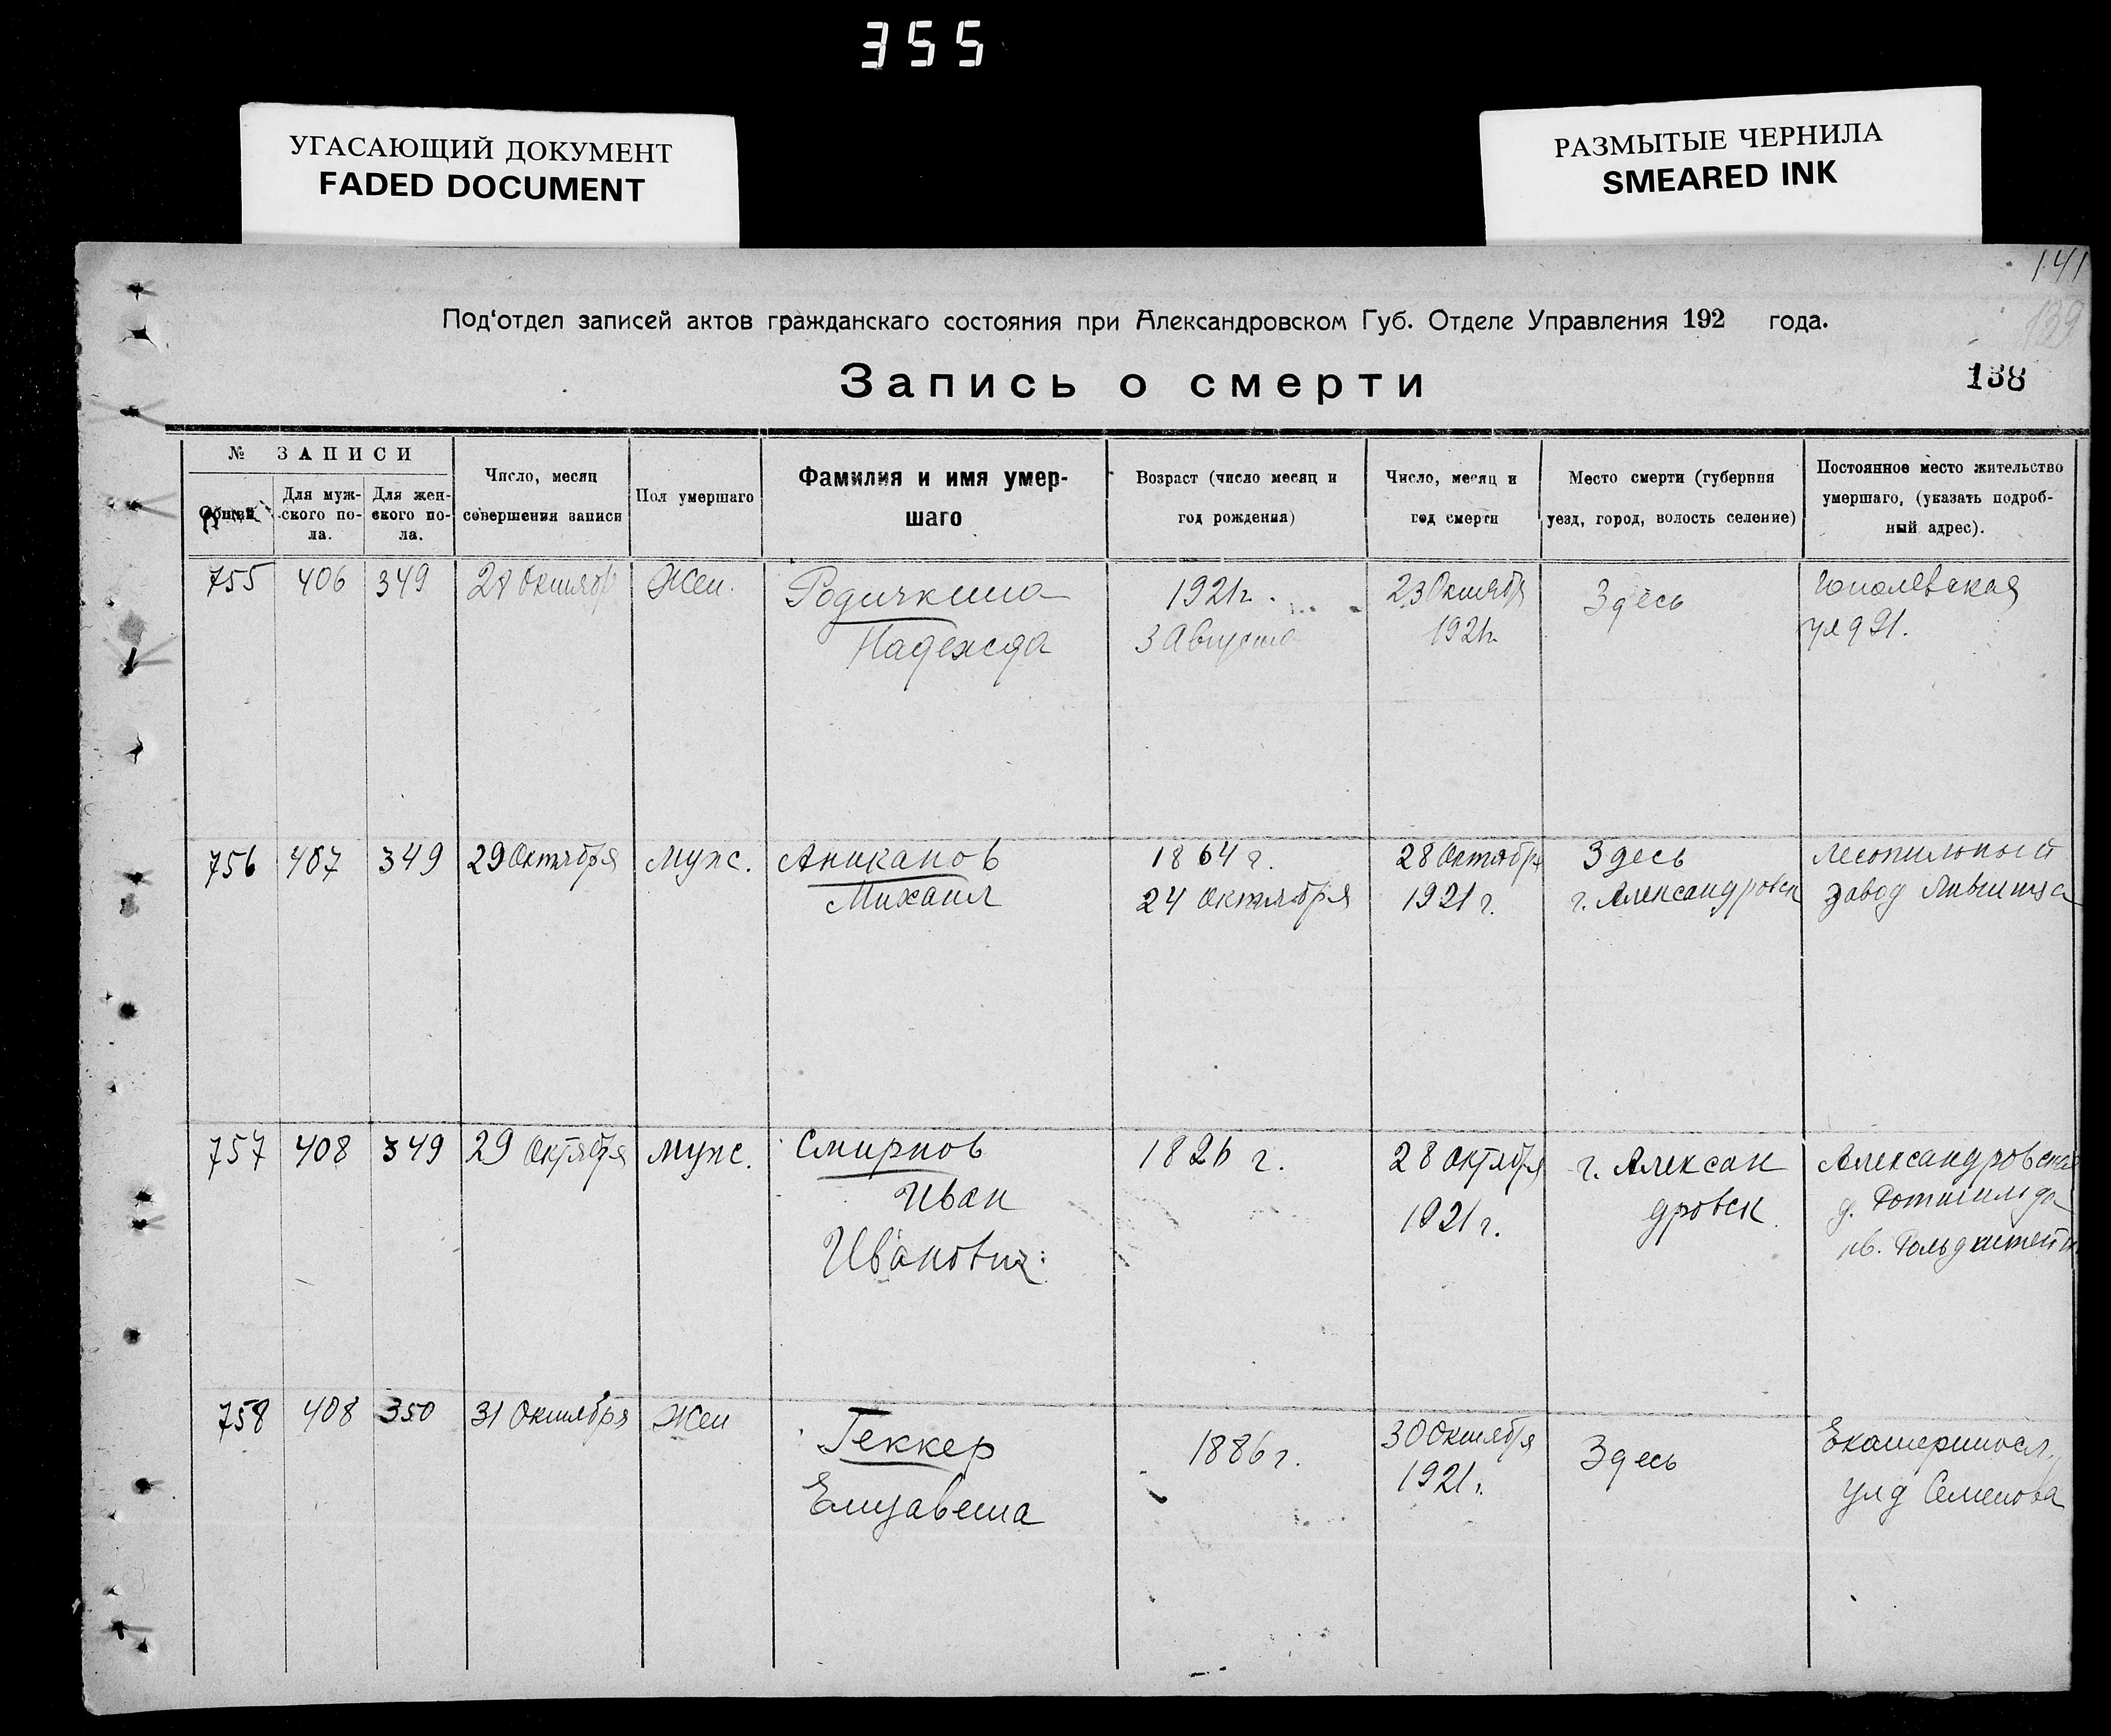 355
УГАСАЮЩИЙ ДОКУМЕНТ
FADED DOCUMENT
РАЗМЫТЫЕ ЧЕРНИЛА
SMEARED INK
141
139
Под'отдел записей актов гражданскаго состояния при Александровском Губ. Отделе Управления 192 года.
Запись о смерти
138
№ ЗАПИСИ
Общий
Для муж-
ского по-
ла.
Для жен-
ского по-
ла.
Число, месяц
совершения записи
Пол умершаго
Фамилия и имя умер-
шаго
Возраст (число месяц и
год рождения)
Число, месяц и
год смерти
Место смерти (губерния
уезд, город, волость селение)
Постоянное место жительство
умершаго, (указать подроб-
ный адрес).
755 406 349 Октябр Жен. Родичкина 1921г. 23 Октября Здесь
Надежда 3 Августа 1921г. ул д 91.
756 407 349 29 Октября Муж. Аниканов 1864 г. 28 Октября Здесь Лесопильный
Михаил 24 Октября 1921 г. г. Александровск завод
757 408 349 29 Октября Муж. Смирнов 1826 г. 28 Октября г. Алексан Александровская
Иван 1921 г. дровск д. Ротшильда
Иванович: кв.
758 408 350 31 Октября Жен Геккер 1886 г. 30 Октября Здесь Екатериносл.
Елизавета 1921 г. ул д Семенова